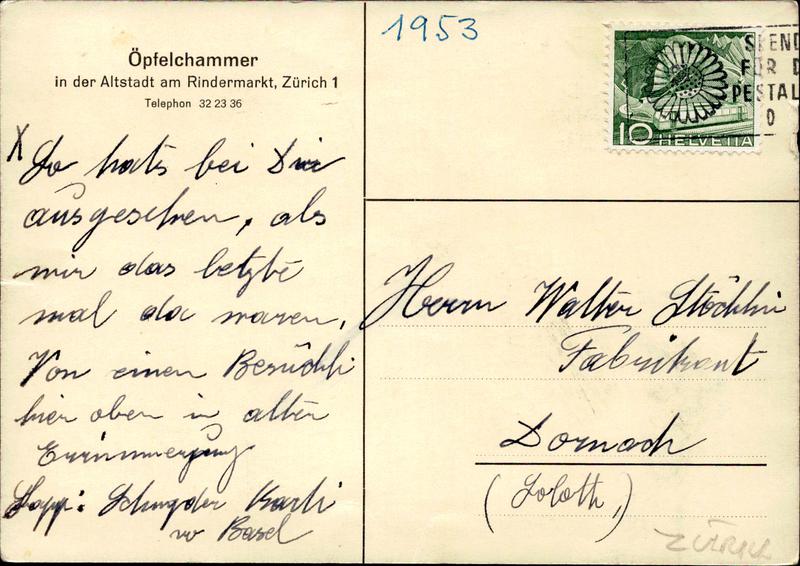 Öpfelchammer
in der Altstadt am Rindermarkt, Zürich 1
Telephon 32 23 36
X So hats bei Dir
ausgesehen, als
mir das letzte
mal da waren.
Von einen Besüchli
hier oben in alter
Errinnerung
Schnyder Karli
vo Basel
1953
10 HELVETIA
SPEND
FÜR D
PESTAL
Herrn Walter Stöcklin
Fabrikant
Dornach
(Soloth,)
ZÜRICH